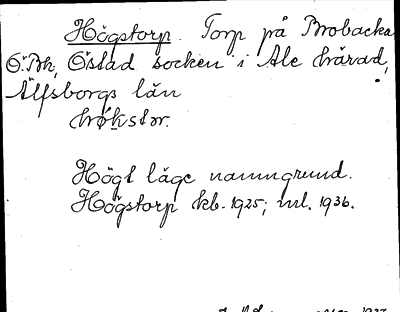 Högstorp. Torp på Brobacka
Ö: Bh, Östad socken i Ale härad,
Älfsborgs län
hø̀kstɔr.
Högt läge namngrund.
Högstorp kb. 1925; ml. 1936.